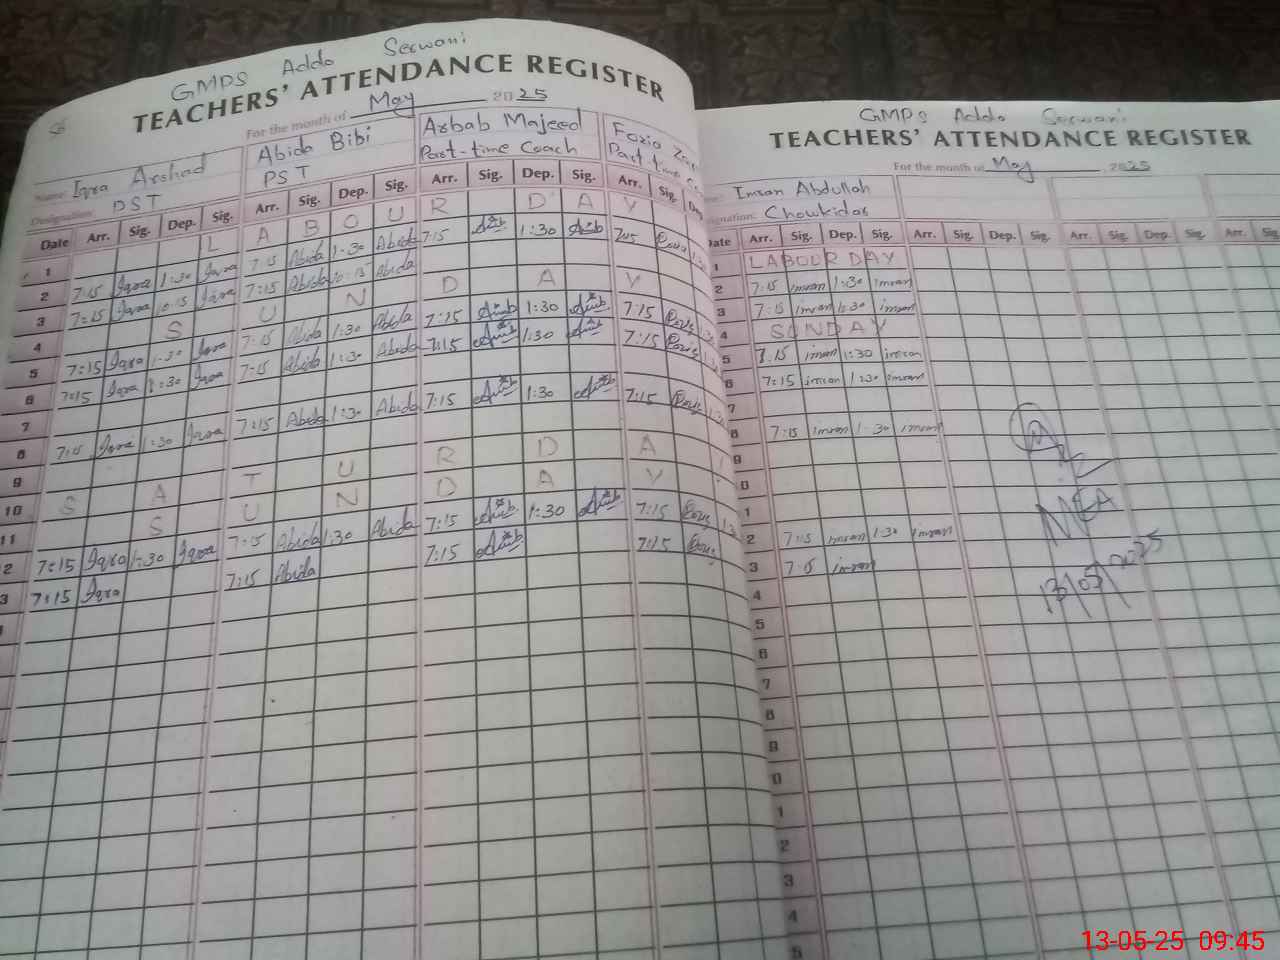 GMPS Addo Serwani
TEACHERS' ATTENDANCE REGISTER
For the month of May 2025
Name: Iqra Arshad Abida Bibi Arbab Majeed Fozia
Designation: PST PST Part-time Coach Part-time
Date Arr. Sig. Dep. Sig. Arr. Sig. Dep. Sig. Arr. Sig. Dep. Sig. Arr. Sig. Dep
1 L A B O U R D A Y
2 7:15 Iqra 1:30 Iqra 7:15 Abida 1:30 Abida 7:15 1:30 7:15
3 7:15 Iqra 10:15 Iqra 7:15 Abida 10:15 Abida
4 S U N D A Y
5 7:15 Iqra 1:30 Iqra 7:15 Abida 1:30 Abida 7:15 1:30 7:15
6 7:15 Iqra 1:30 Iqra 7:15 Abida 1:30 Abida 7:15 1:30 7:15
7
8 7:15 Iqra 1:30 Iqra 7:15 Abida 1:30 Abida 7:15 1:30 7:15
9
10 S A T U R D A
11 S U N D A Y
2 7:15 Iqra 1:30 Iqra 7:15 Abida 1:30 Abida 7:15 1:30 7:15
3 7:15 Iqra 7:15 Abida 7:15 7:15
GMPS Addo Serwani
TEACHERS' ATTENDANCE REGISTER
For the month of May 2025
Imran Abdullah
Designation: Chowkidar
Date Arr. Sig. Dep. Sig. Arr. Sig. Dep. Sig. Arr. Sig. Dep. Sig. Arr. Sig.
1 LABOUR DAY
2 7:15 imran 1:30 imran
3 7:15 imran 1:30 imran
4 SUNDAY
5 7:15 imran 1:30 imran
6 7:15 imran 1:30 imran
7
8 7:15 imran 1:30 imran
9
0
1
2 7:15 imran 1:30 imran
3 7:15 imran
4
5
6
7
8
9
0
1
2
3
4
5
MEA
13/05/2025
13-05-25 09:45